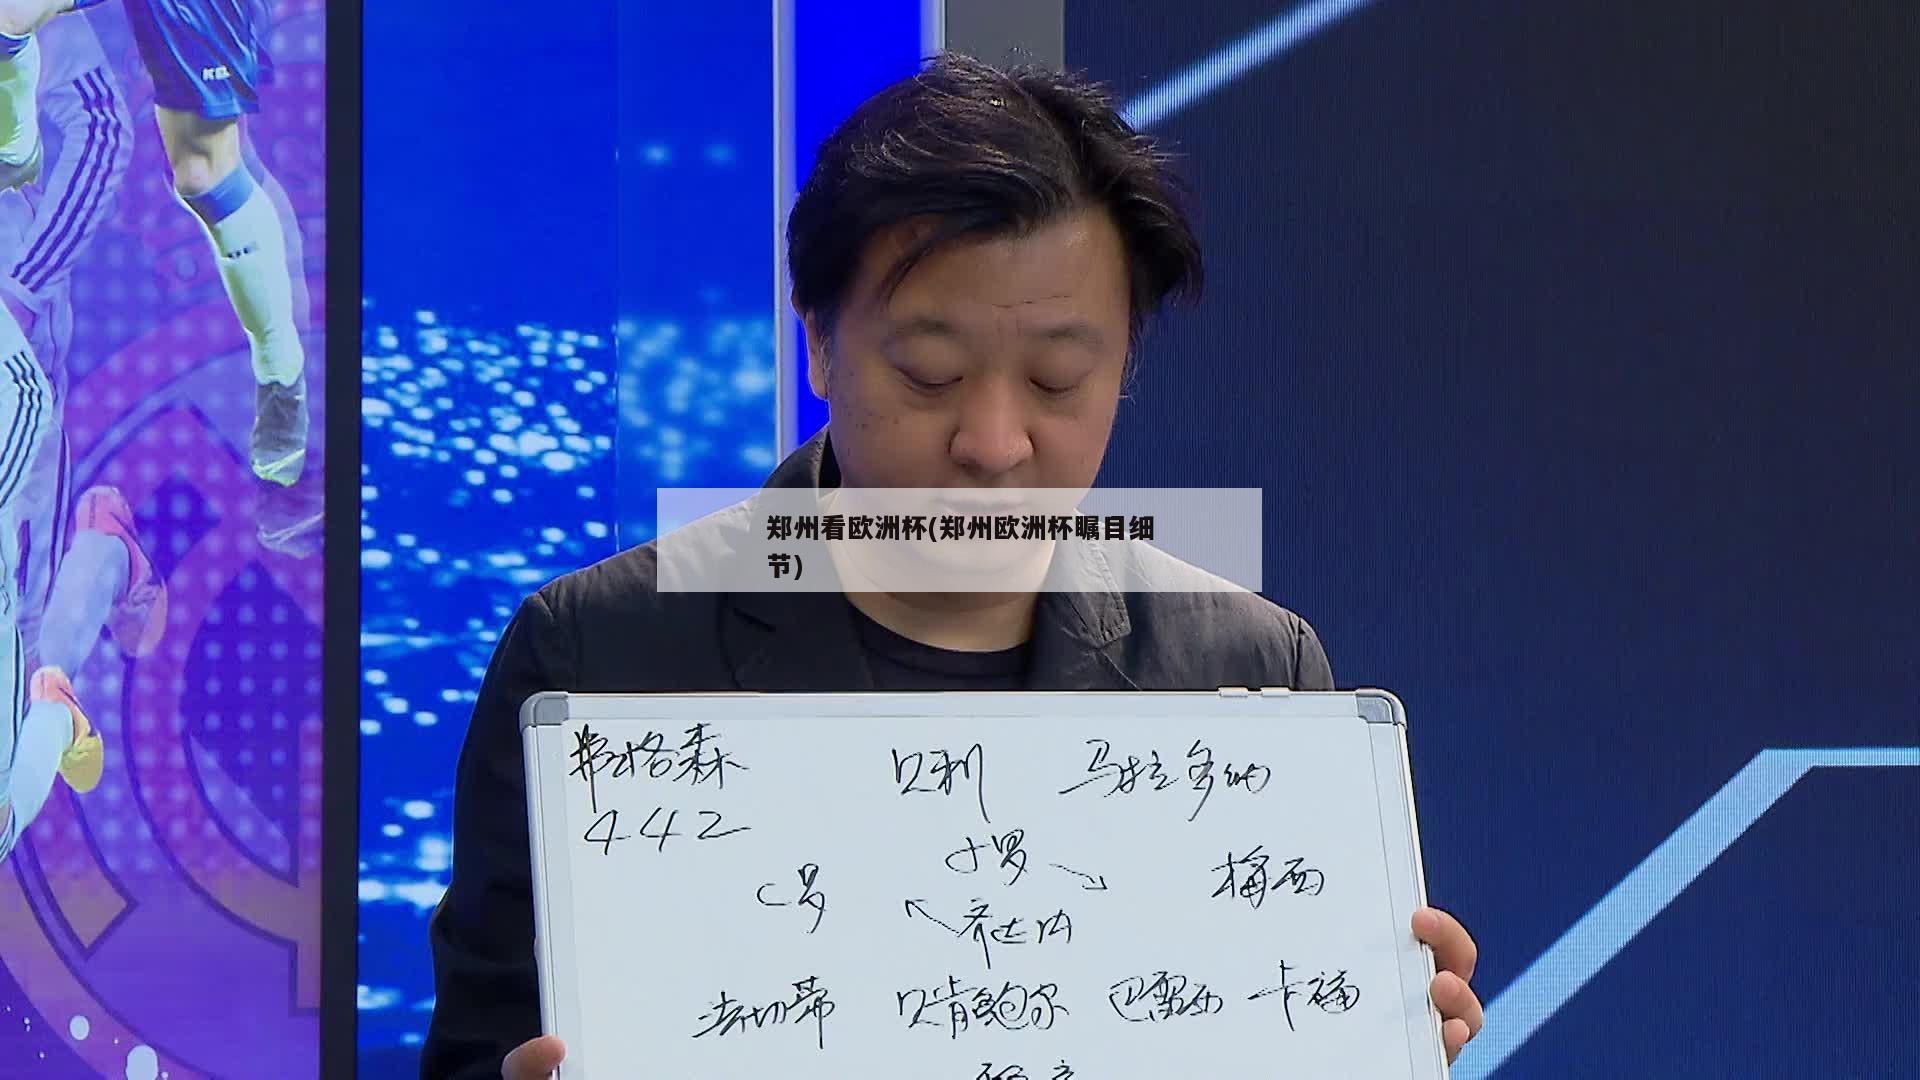 郑州看欧洲杯(郑州欧洲杯瞩目细
节)
弗格森 贝利 马拉多纳
442
小罗
C罗 梅西
齐达内
法切蒂 贝肯鲍尔 巴雷西 卡福